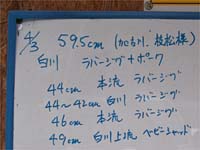 4/3 59.5cm (加古川、枝松様)
白川 ラバージグ+ポーク
44cm 本流 ラバージグ
44～42cm 白川 ラバージグ
46cm 本流 ラバージグ
49cm 白川上流 ベビーシャッド